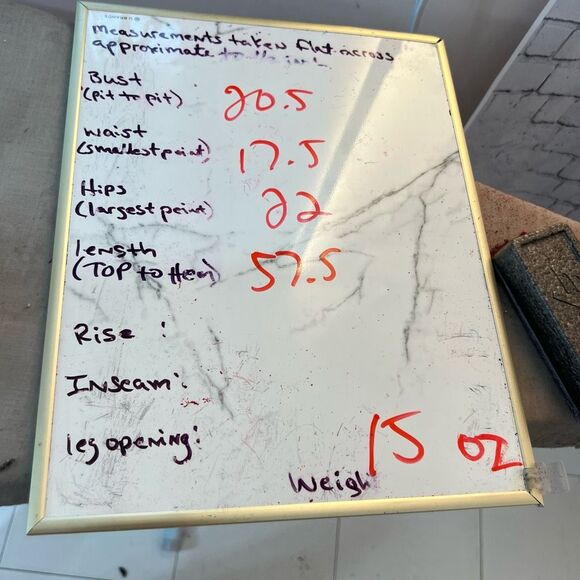 Measurements taken flat across
approximate to the inch
Bust
(pit to pit) 20.5
waist
(smallest point) 17.5
Hips
(largest point) 22
length
(TOP to Hem) 57.5
Rise :
Inseam:
leg opening:
15 oz
Weigh